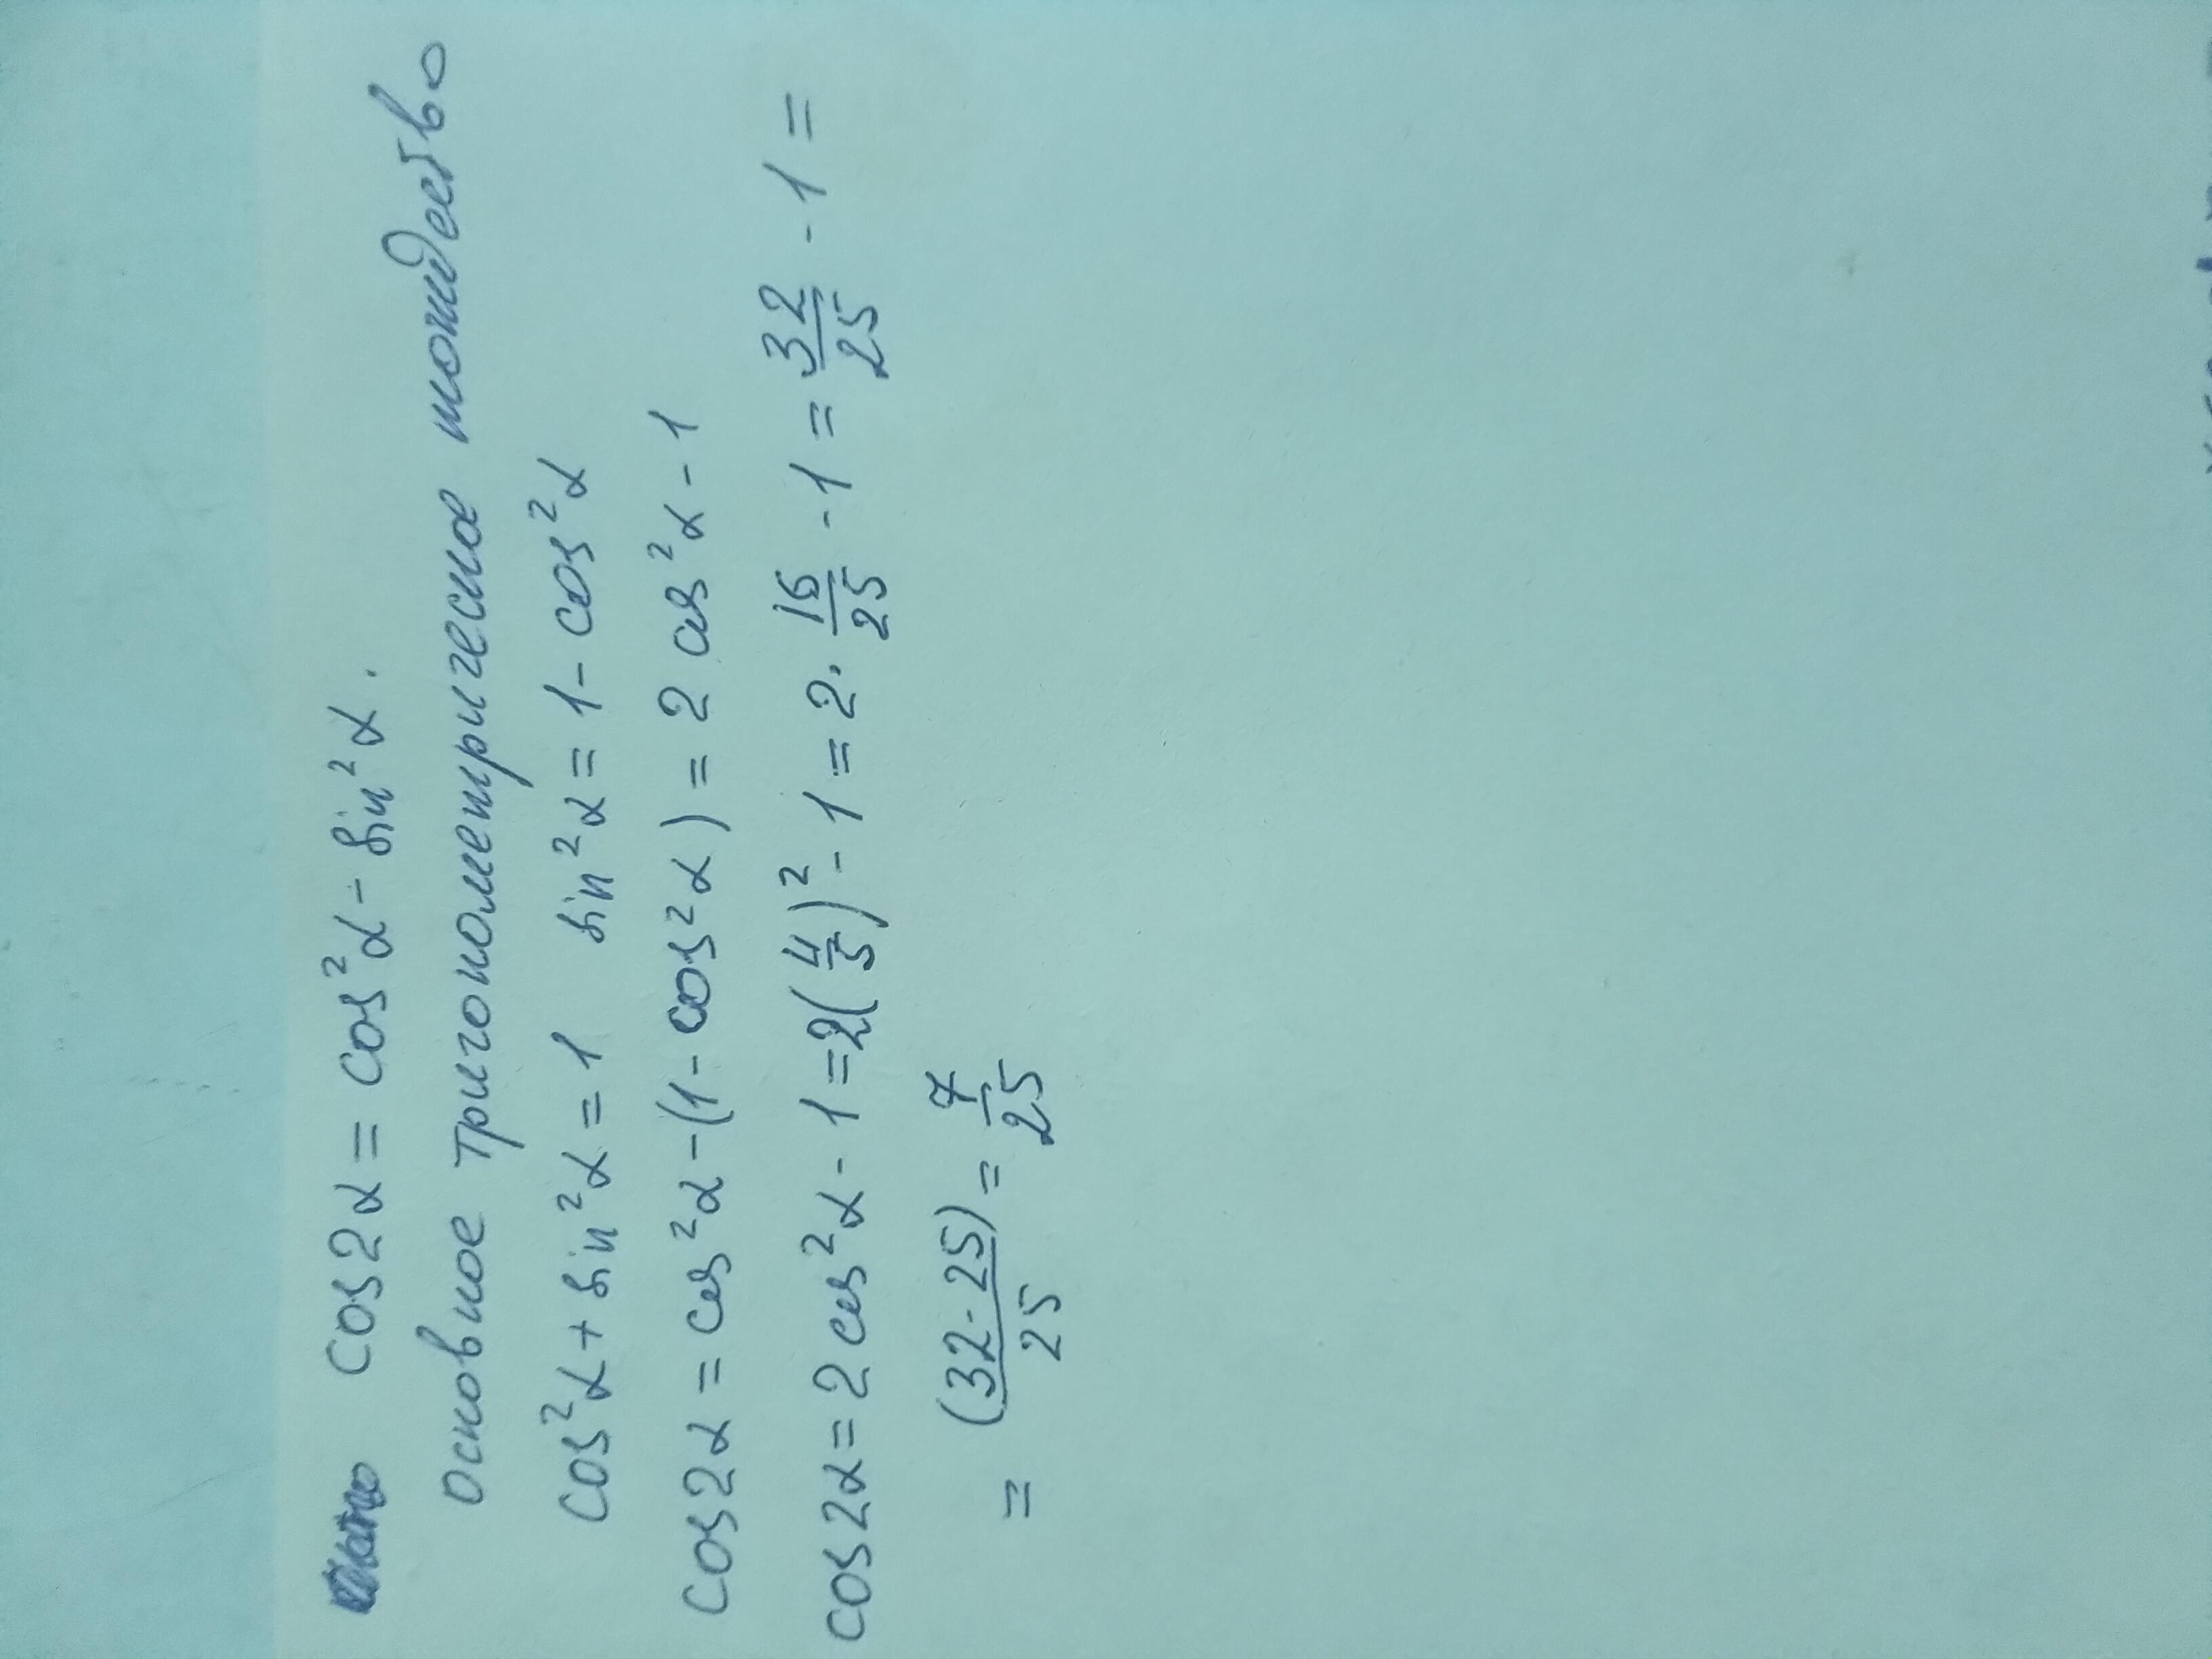 cos2α = cos²α - sin²α.
Основное тригонометрическое тождество
cos²α + sin²α = 1 sin²α = 1 - cos²α
cos2α = cos²α - (1 - cos²α) = 2 cos²α - 1
cos2α = 2 cos²α - 1 = 2(4/5)² - 1 = 2 · 16/25 - 1 = 32/25 - 1 =
= (32 - 25)/25 = 7/25